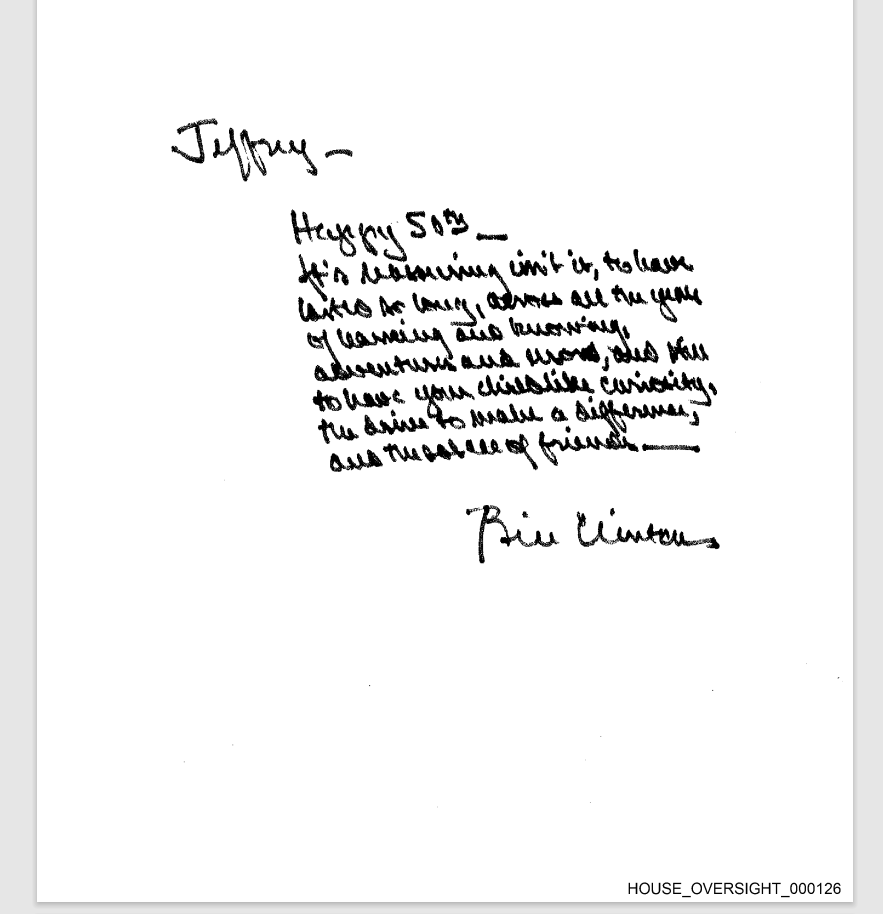 Jeffrey —
Happy 50th —
It's reassuring isn't it, to have
lasted as long, across all the years
of learning and knowing,
adventures and and still
to have your childlike curiosity,
the drive to make a difference,
and the solace of friends. —
Bill Clinton
HOUSE_OVERSIGHT_000126